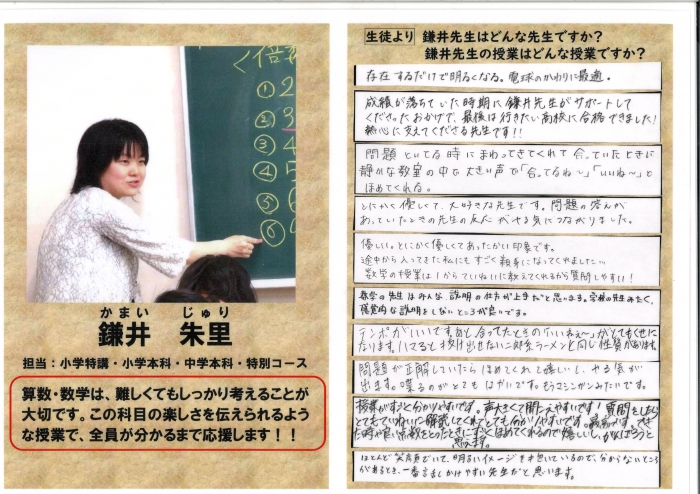 <倍
① 2
② 3
③ 4
④ 5
⑤ 6
⑥
かまい じゅり
鎌井 朱里
担当：小学特講・小学本科・中学本科・特別コース
算数・数学は、難しくてもしっかり考えることが
大切です。この科目の楽しさを伝えられるよう
な授業で、全員が分かるまで応援します！！
生徒より 鎌井先生はどんな先生ですか？
鎌井先生の授業はどんな授業ですか？
存在するだけで明るくなる。電球のかわりに最適。
成績が落ちていた時期に鎌井先生がサポートして
くださったおかげで、最後は行きたい高校に合格できました！
熱心に支えてくださる先生です！！
問題といてる時にまわってきてくれて合っていたときに
静かな教室の中で大きい声で「合ってるね～」「いいね～」と
ほめてくれる。
とにかく優しくて、大好きな先生です。問題の答えが
あっていたときの先生の反応がやる気につながりました。
優しい。とにかく優しくてあったかい印象です。
途中から入ってきた私にもすごく親身になってくれました
数学の授業は1からていねいに教えてくれるから質問しやすい！
数学の先生はみんな、説明の仕方が上手だと思います。学校の先生みたく、
感覚的な説明をしないところが良いです。
テンポがいいです。あと、合ってたときの「いいねぇ～」がとてもくせに
なります。ハマると抜け出せない二郎系ラーメンと同じ性質があります。
問題が正解していたらほめてくれて嬉しいし、やる気が
出ます。喋るのがとてもはやいです。もうマシンガンみたいです。
授業がすごく分かりやすいです。声大きくて聞こえやすいです！質問をしたら
とてもていねいに確認してくれてとても分かりやすいです。
た時や良い点数をとったときにすごくほめてくれるので嬉しいし、がんばろうと
思えます。
ほとんど笑顔でいて、明るいイメージを抱いているので、分からないところ
があるとき、一番話しかけやすい先生だと思います。